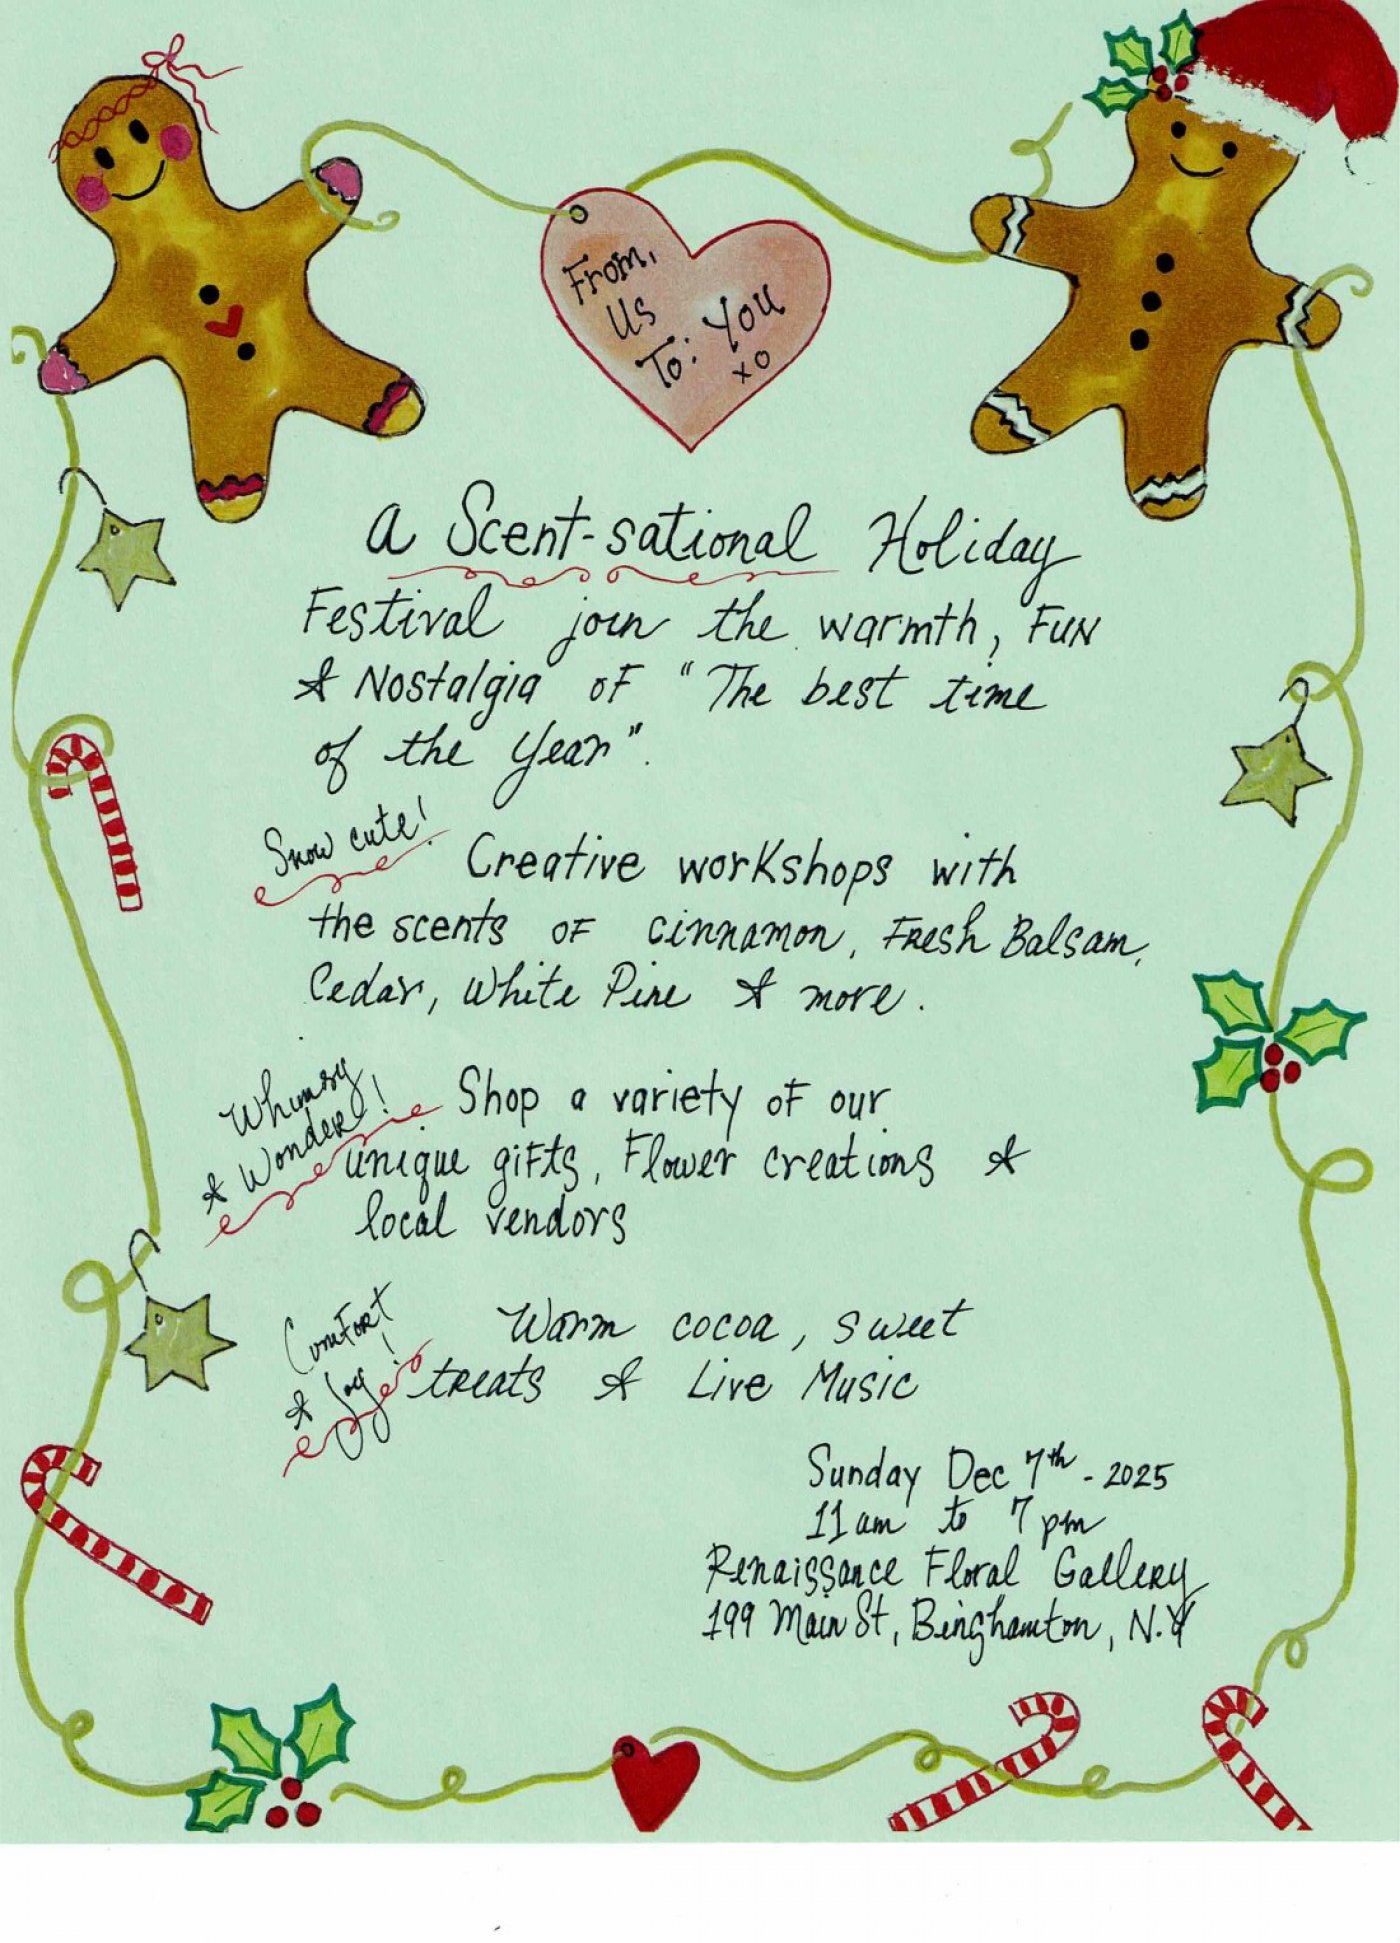 From,
Us
To: You
xo
a Scent-sational Holiday
Festival join the warmth, FUN
& Nostalgia OF "The best time
of the Year".
Snow cute!
Creative workshops with
the scents OF cinnamon, Fresh Balsam,
Cedar, White Pine & more.
Whimsy
& Wonder!
Shop a variety of our
unique gifts, Flower creations &
local vendors
Comfort
& Joy!
Warm cocoa, sweet
treats & Live Music
Sunday Dec 7th - 2025
11 am to 7 pm
Renaissance Floral Gallery
199 Main St, Binghamton, N.Y